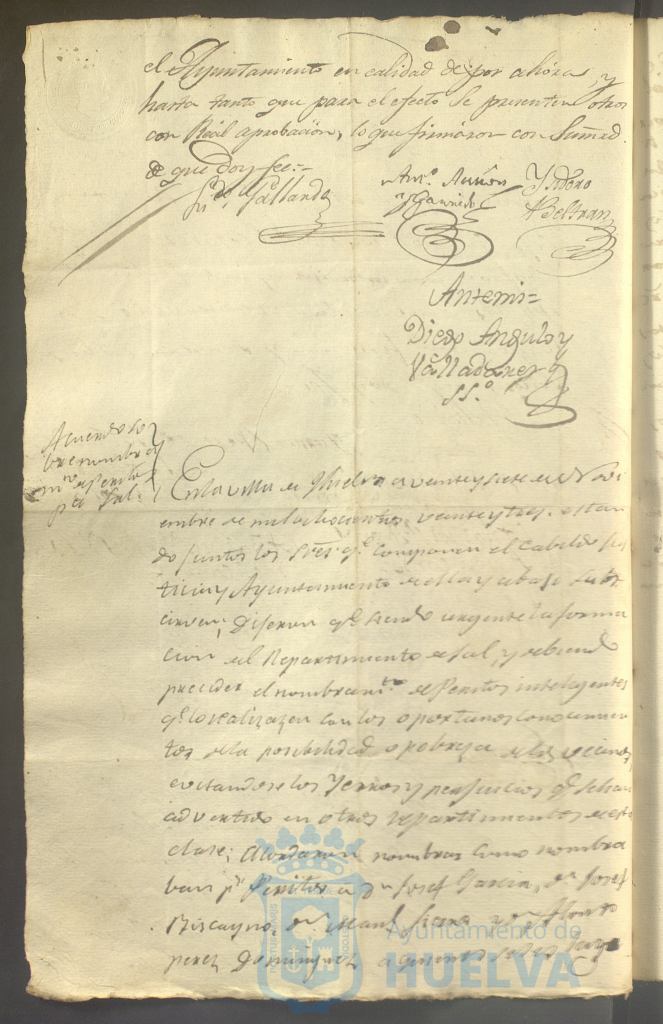 el Ayuntamiento en calidad de por ahora, y
hasta tanto que para el efecto se presenten otros
con Real aprobacion, lo que firmaron con Su mrd
de que Doy fee =
Antt.o
Ysidoro
Beltran
Antemi =
Diego Angulo y
Valladares
SS.o
Acuerdo so
bre nombra
mto de perito
pa Sal.
En la villa de Huelva a veinte y siete de Novi
embre de mil ochocientos veinte y tres estan
do juntos los Sres qe componen el Cabildo Jus
ticia y Ayuntamiento de ella y abajo subs
criven; Dijeron qe siendo urgente la forma
cion del Repartimiento de Sal, y debiendo
preceder el nombramto de Peritos inteligentes
qe lo realizen con los oportunos conocimien
tos de la posibilidad o pobreza de los vecinos
evitandose los Yerros y perjuicios qe se han
advertido en otros repartimientos de esta
clase; Acordaron nombrar como nombra
ban pr Peritos a Dn Josef Garcia, Dn Josef
Biscayno, Dn Manl y Dn Alonso
perez Dominguez a quienes se les
Ayuntamiento de
HUELVA